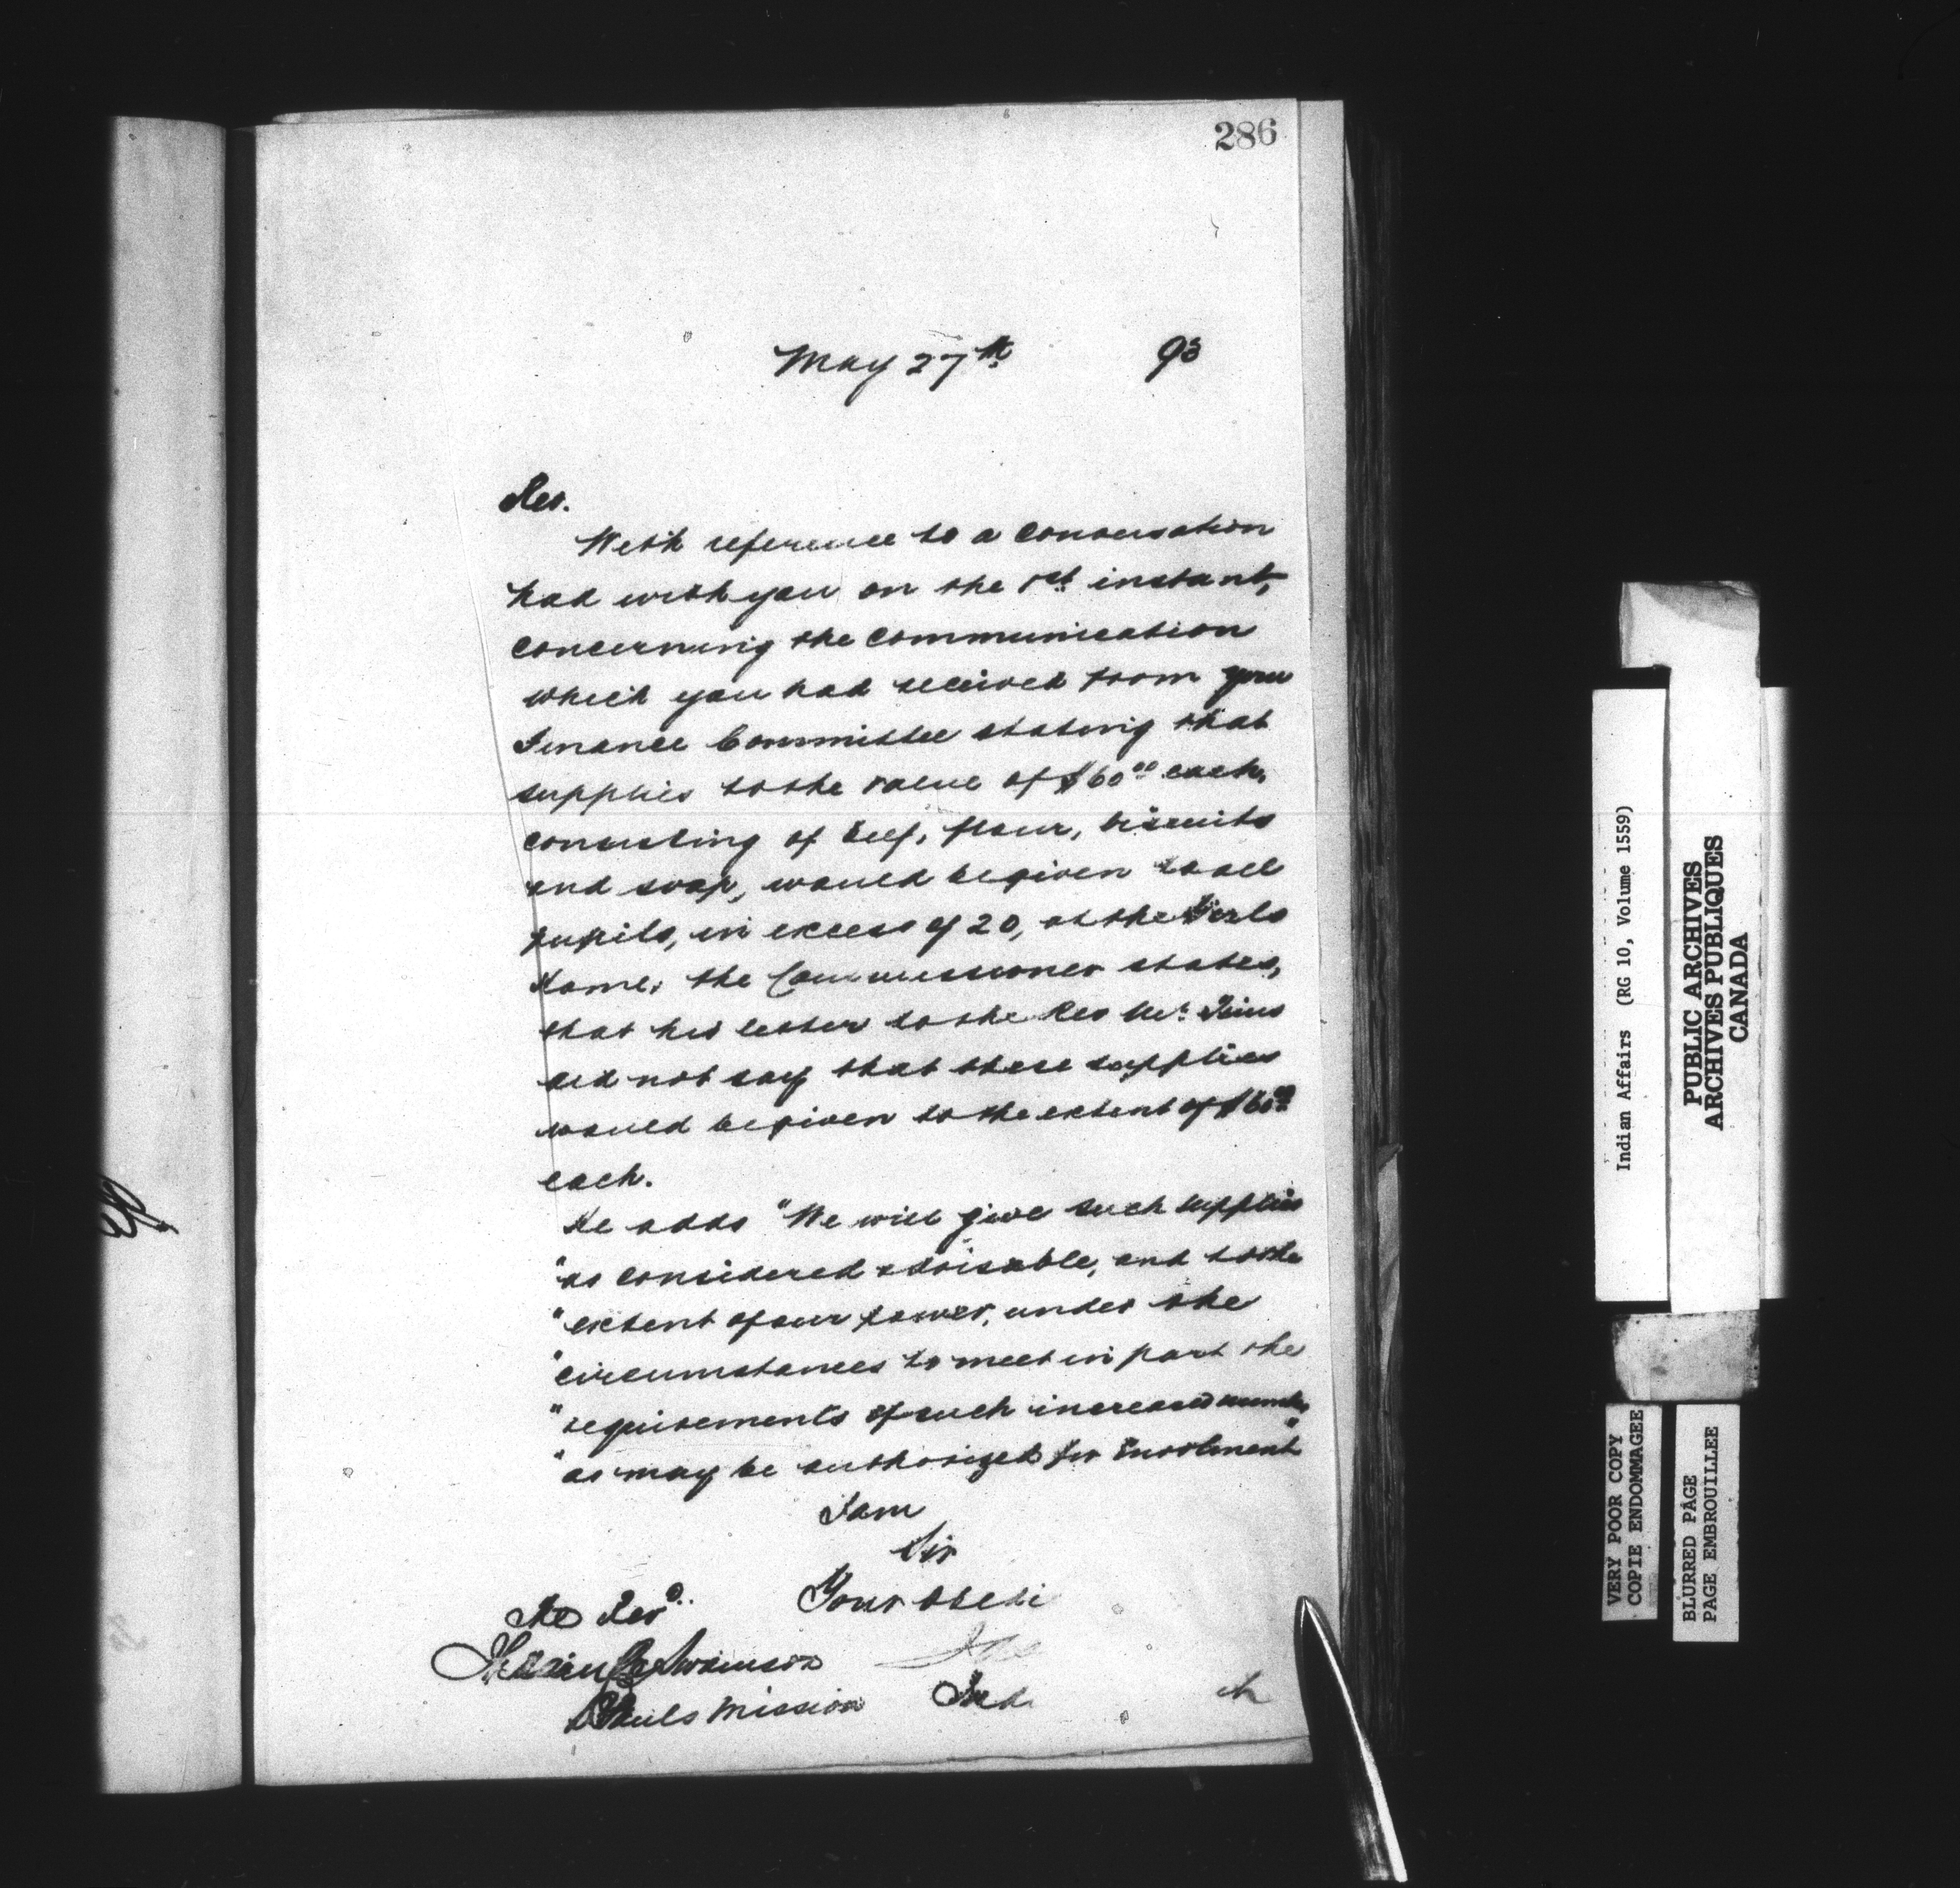 286
May 27th 93
Rev.
With reference to a conversation
had with you on the 1st instant,
concerning the communication
which you had received from your
Finance Committee stating that
supplies to the value of $60.00 each,
consisting of beef, flour, biscuits
and soap, would be given to all
pupils, in excess of 20, at the Girls
Home, the Commissioner states,
that his letter to the Rev Mr. Tims
did not say that these supplies
would be given to the extent of $60.00
each.
He adds "We will give such supplies
"as considered advisable, and to the
"extent of our power, under the
"circumstances to meet in part the
"requirements of such increased number
"as may be authorized for Enrolment"
I am
Sir
Your Obedi
The Revd.
Swainson
St Pauls Mission Ind.
Indian Affairs (RG 10, Volume 1559)
PUBLIC ARCHIVES
ARCHIVES PUBLIQUES
CANADA
VERY POOR COPY
COPIE ENDOMMAGEE
BLURRED PAGE
PAGE EMBROUILLEE